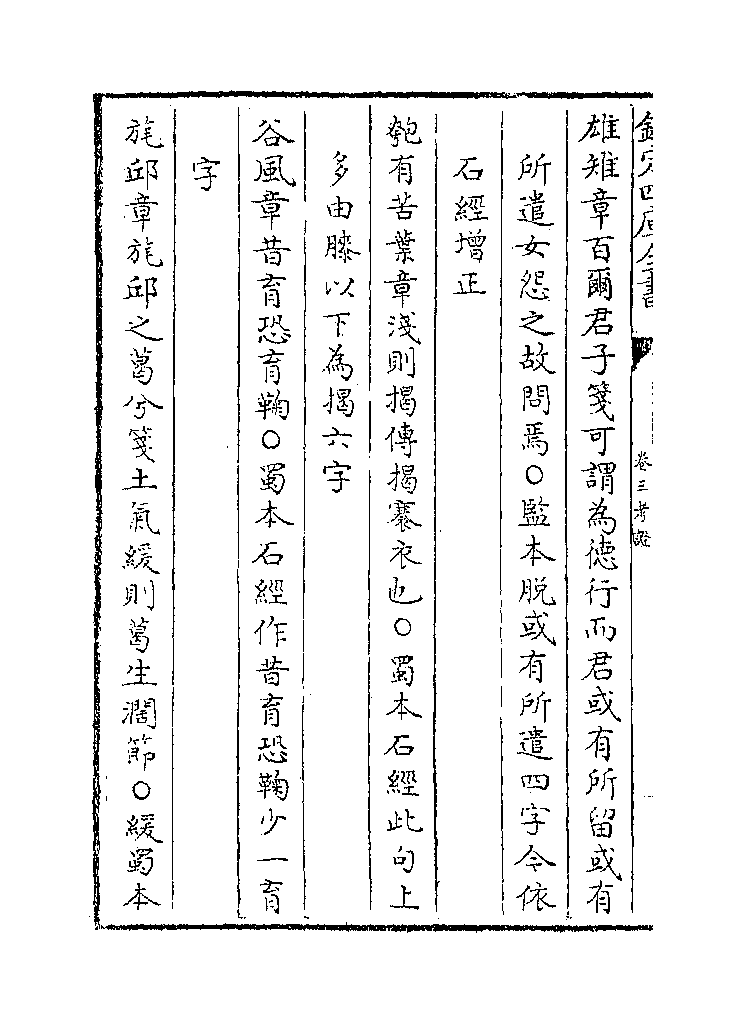 欽定四庫全書
卷三考證
雄雉章百爾君子箋可謂為徳行而君或有所留或有
所遣女怨之故問焉○監本脱或有所遣四字今依
石經增正
匏有苦葉章淺則揭傳揭褰衣也○蜀本石經此句上
多由膝以下為揭六字
谷風章昔育恐育鞠○蜀本石經作昔育恐鞠少一育
字
旄邱章旄邱之葛兮箋土氣緩則葛生濶節○緩蜀本